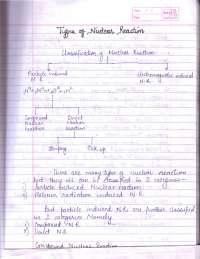 Types of Nuclear Reaction
Classification of Nuclear Reaction
Particle induced
N.R.
Electromagnetic induced
N.R.
Compound
Nuclear
Reaction
Direct
Nuclear
Reaction
Stripping
Pick up
There are many types of nuclear reactions
but they all can be classified in 2 categories
Particle induced Nuclear reaction
radiation induced N.R.
But particle induced N.R. are further classified
in 2 categories Namely
Compound N.R.
Direct N.R.
Compound Nuclear Reaction